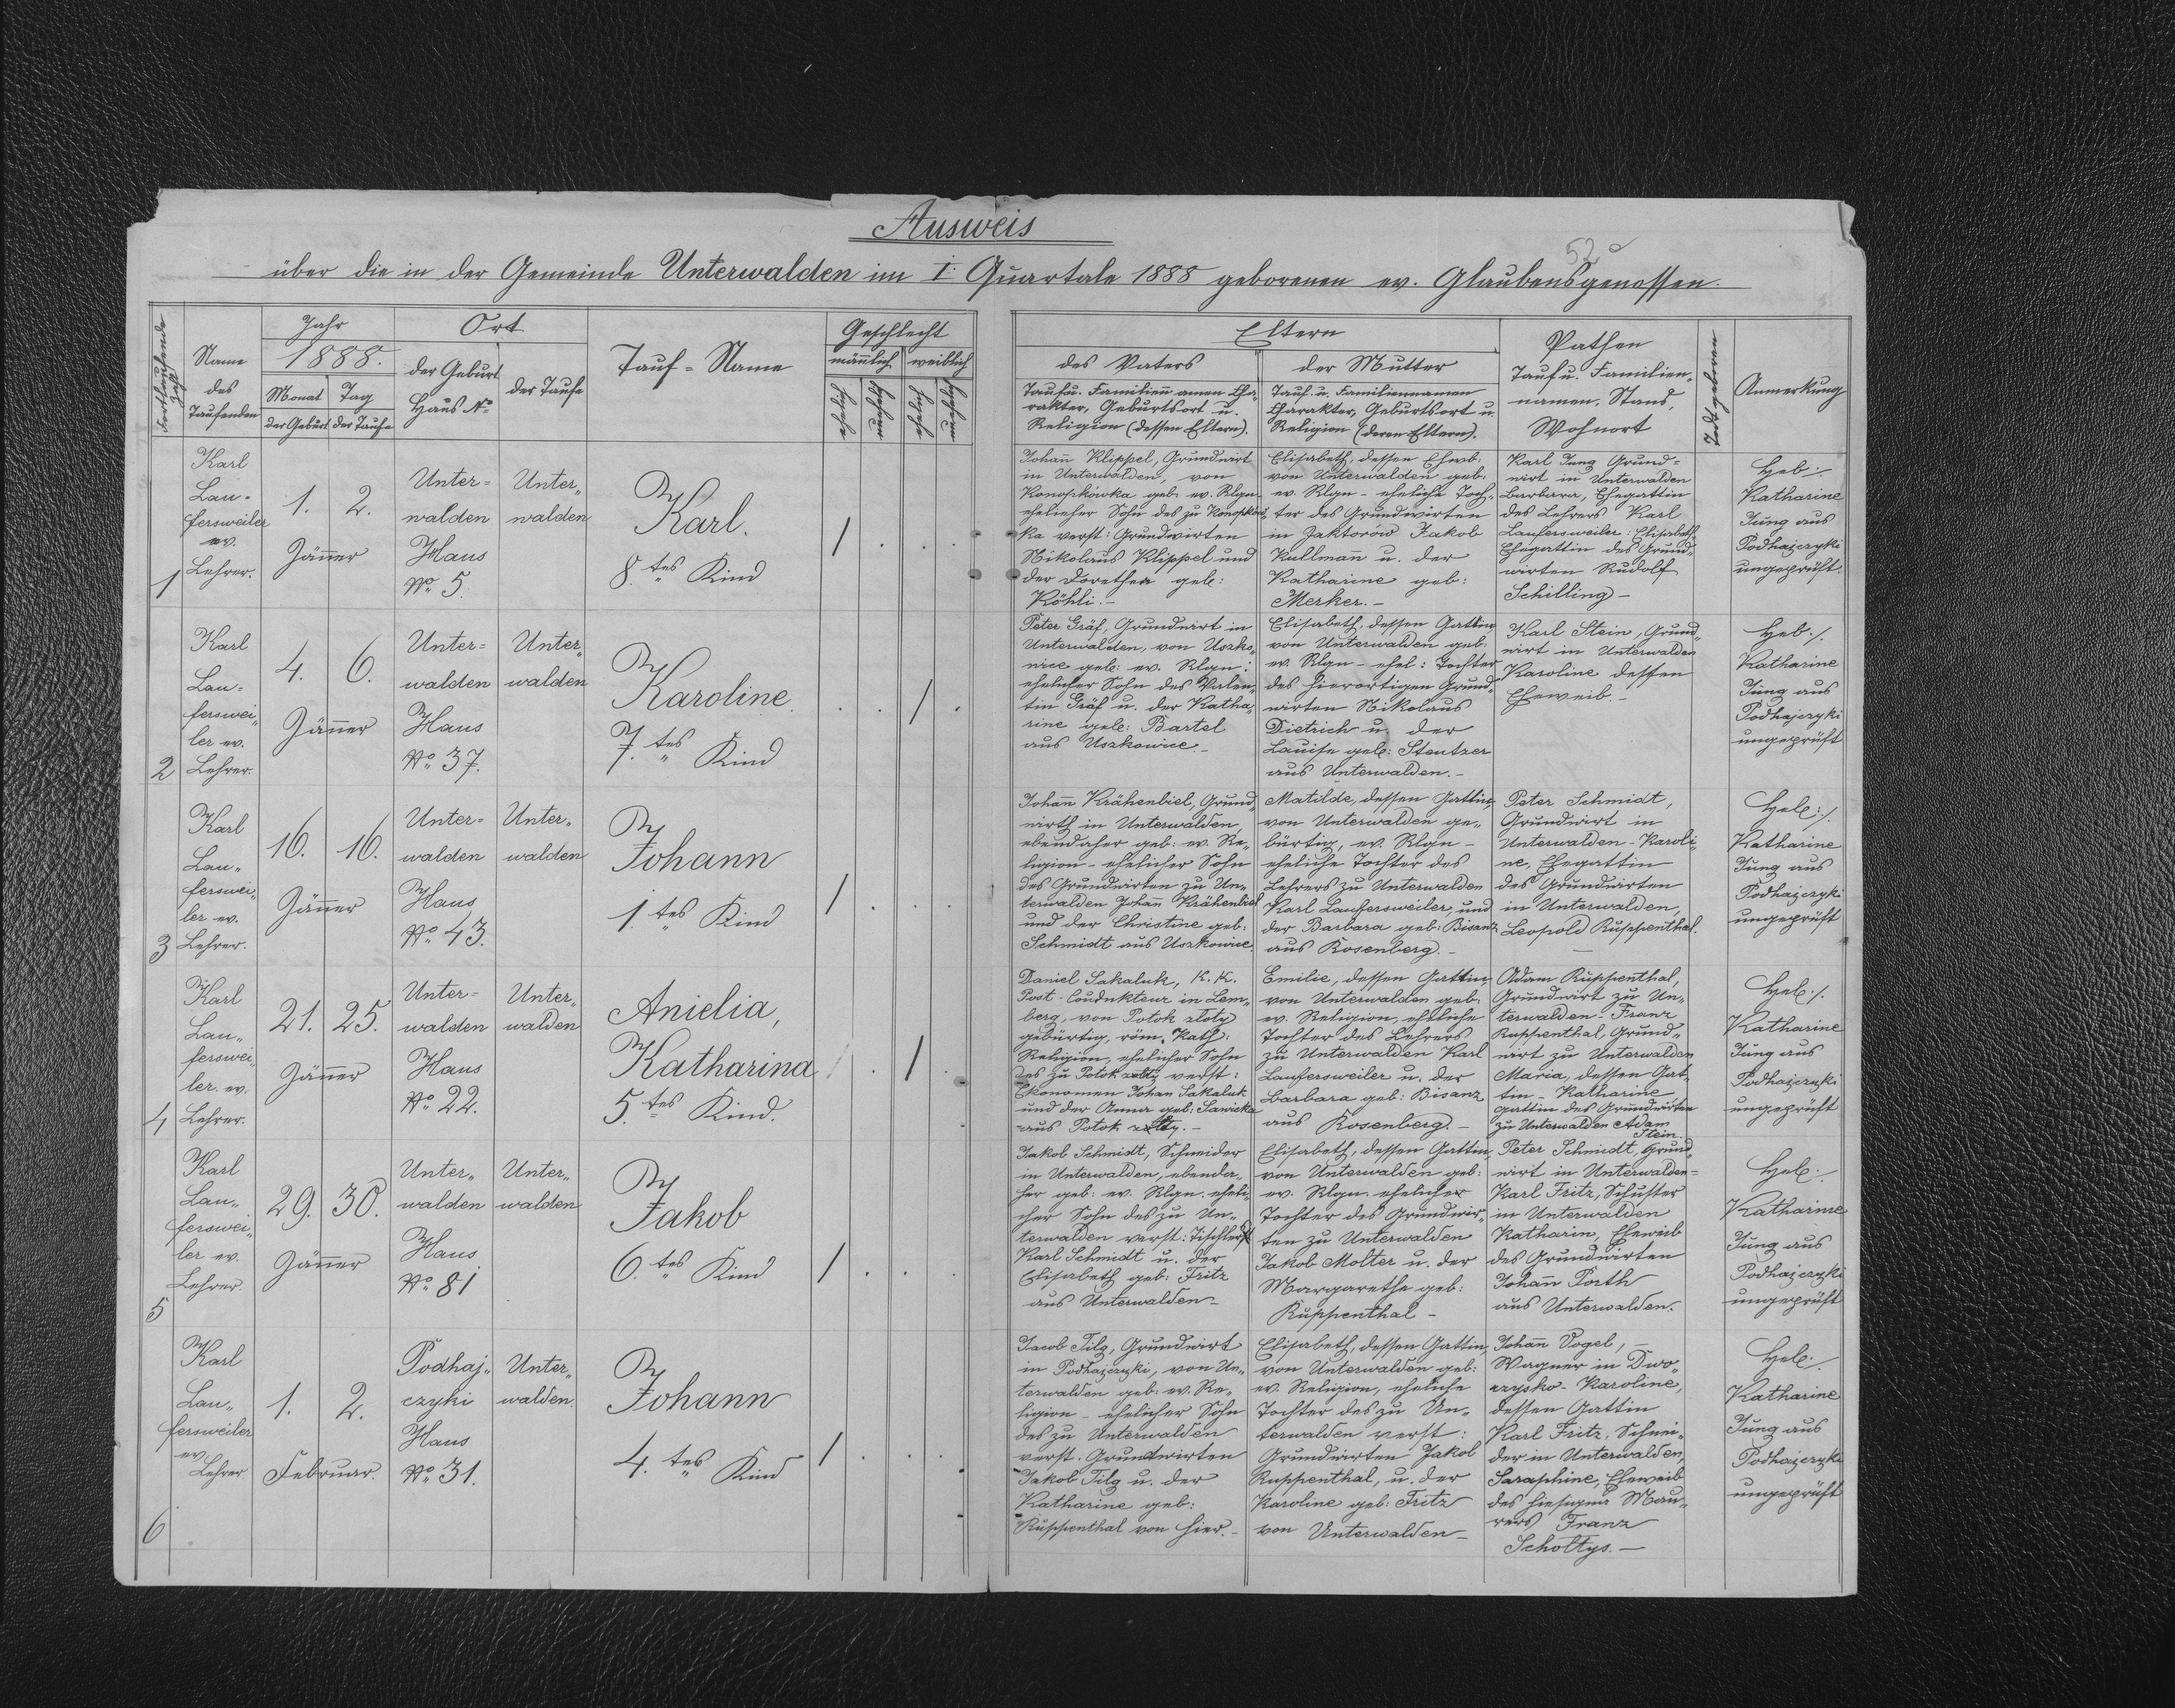 Ausweis
52
über die in der Gemeinde Unterwalden im I. Quartale 1888 geborenen ev. Glaubensgenossen.
Fortlaufende Zahl
Name
des
Taufenden
Jahr
1888.
Monat Tag
der Geburt der Taufe
Ort
der Geburt
Haus No.
der Taufe
Tauf-Name
Geschlecht
männlich weiblich
Eltern
des Vaters
Tauf u. Familiennamen Cha-
rakter, Geburtsort u.
Religion (dessen Eltern).
der Mutter
Tauf- u. Familiennamen
Charakter, Geburtsort u.
Religion (deren Eltern).
Pathen
Tauf u. Familien-
namen, Stand,
Wohnort
Todt geboren
Anmerkung
1
Karl
Lau-
fersweiler
ev.
Lehrer.
1. 2.
Jäner
Unter-
walden
Haus
No. 5.
Unter„
walden
Karl.
8.tes Kind
Johann Klippel, Grundwirt
in Unterwalden, von
Konopkówka geb. ev. Rlgn
ehelicher Sohn des zu Konopków-
ka verst: Grundwirten
Nikolaus Klippel und
der Dorethea geb:
Köhli.-
Elisabeth, dessen Ehwb:
von Unterwalden geb.
ev. Rlgn - eheliche Toch-
ter des Grundwirten
in Jaktorów Jakob
Kullmann u. der
Katharine geb:
Merker.-
Karl Jung Grund-
wirt in Unterwalden
Barbara, Ehegattin
des Lehrers Karl
Laufersweiler: Elisabeth
Ehegattin des Grund-
wirten Rudolf
Schilling-
Heb:
Katharine
Jung aus
Podhajczyki
ungeprüft.
2
Karl
Lau-
ferswei„
ler ev.
Lehrer.
4. 6.
Jäner
Unter-
walden
Haus
No. 37.
Unter„
walden
Karoline.
7.tes Kind
Peter Gräf, Grundwirt in
Unterwalden, von Uszko„
wice geb: ev. Rlgn:
ehelicher Sohn des Valen„
tin Gräf u. der Katha„
rine geb: Bartel
aus Uszkowice.-
Elisabeth, dessen Gattin,
von Unterwalden geb:
ev. Rlgn - ehel: Tochter
des hierortigen Grund„
wirten Nikolaus
Dietrich u. der
Lauise geb: Stentzer
aus Unterwalden.-
Karl Stein, Grund„
wirt in Unterwalden
Karoline dessen
Eheweib.-
Heb:
Katharine
Jung aus
Podhajczyki
ungeprüft
3
Karl
Lau„
ferswei„
ler ev.
Lehrer.
16. 16.
Jäner
Unter-
walden
Haus
No. 43.
Unter„
walden
Johann
1.tes Kind
Johann Krähenbiel, Grund„
wirth in Unterwalden,
ebendaher geb: ev. Re„
ligion - ehelicher Sohn
des Grundwirten zu Un„
terwalden Johann Krähenbiel
und der Christine geb:
Schmidt aus Uszkowice.
Matilde, dessen Gattin,
von Unterwalden ge„
bürtig, ev. Rlgn -
eheliche Tochter des
Lehrers zu Unterwalden
Karl Laufersweiler, und
der Barbara geb: Bisanz
aus Rosenberg.-
Peter Schmidt,
Grundwirt in
Unterwalden - Karoli„
ne, Ehegattin
des Grundwirten
in Unterwalden,
Leopold Ruppenthal.
Heb:
Katharine
Jung aus
Podhajczyki
ungeprüft
4
Karl
Lau„
ferswei„
ler. ev.
Lehrer.
21. 25.
Jäner
Unter-
walden
Haus
No. 22.
Unter„
walden
Anielia,
Katharina
5.tes Kind.
Daniel Sakaluk, K. K.
Post-Condukteur in Lem„
berg, von Potok złoty
gebürtig, röm. Kath:
Religion, ehelicher Sohn
des zu Potok złoty verst:
Ekonomen Johan Sakaluk
und der Anna geb: Sawicka
aus Potok złoty.-
Emilie, dessen Gattin,
von Unterwalden geb:
ev. Religion, eheliche
Tochter des Lehrers
zu Unterwalden Karl
Laufersweiler u. der
Barbara geb: Bisanz
aus Rosenberg.-
Adam Ruppenthal,
Grundwirt zu Un„
terwalden - Franz
Ruppenthal, Grund„
wirt zu Unterwalden
Maria, dessen Gat„
tin - Katharine
gattin des Grundwirten
zu Unterwalden Adam
Stein.
Heb:
Katharine
Jung aus
Podhajczyki
ungeprüft
5
Karl
Lau„
ferswei„
ler ev.
Lehrer.
29. 30.
Jäner
Unter„
walden
Haus
No. 81
Unter„
walden
Jakob
6.tes Kind
Jakob Schmidt, Schneider
in Unterwalden, ebenda„
her geb: ev. Rlgn. eheli„
cher Sohn des zu Un„
terwalden verst: Tischlers
Karl Schmidt u. der
Elisabeth geb: Fritz
aus Unterwalden-
Elisabeth, dessen Gattin,
von Unterwalden geb:
ev. Rlgn. ehelicher
Tochter des Grundwir„
ten zu Unterwalden
Jakob Molter u. der
Margarethe geb:
Ruppenthal-
Peter Schmidt, Grund„
wirt in Unterwalden-
Karl Fritz, Schuster
in Unterwalden
Katharin, Eheweib
des Grundwirten
Johann Porth
aus Unterwalden.
Heb:
Katharine
Jung aus
Podhajczyki
ungeprüft
6
Karl
Lau„
fersweiler
ev.
Lehrer
1. 2.
Februar.
Podhaj„
czyki
Haus
No. 31.
Unter„
walden.
Johann
4.tes Kind
Jacob Tilg, Grundwirt
in Podhajczyki, von Un„
terwalden geb: ev. Re„
ligion - ehelicher Sohn
des zu Unterwalden
verst. Grundwirten
Jakob Tilg u. der
Katharine geb:
Ruppenthal von hier.-
Elisabeth, dessen Gattin,
von Unterwalden geb:
ev. Religion, eheliche
Tochter des zu Un„
terwalden verst:
Grundwirten Jakob
Ruppenthal, u. der
Karoline geb: Fritz
von Unterwalden-
Johann Vogel,
Wagner in Dwo„
rzysko - Karoline,
dessen Gattin
Karl Fritz, Schnei„
der in Unterwalden,
Saraphine, Eheweib
des hiesigen Mau„
rers Franz
Scholtys.-
Heb:
Katharine
Jung aus
Podhajczyki
ungeprüft